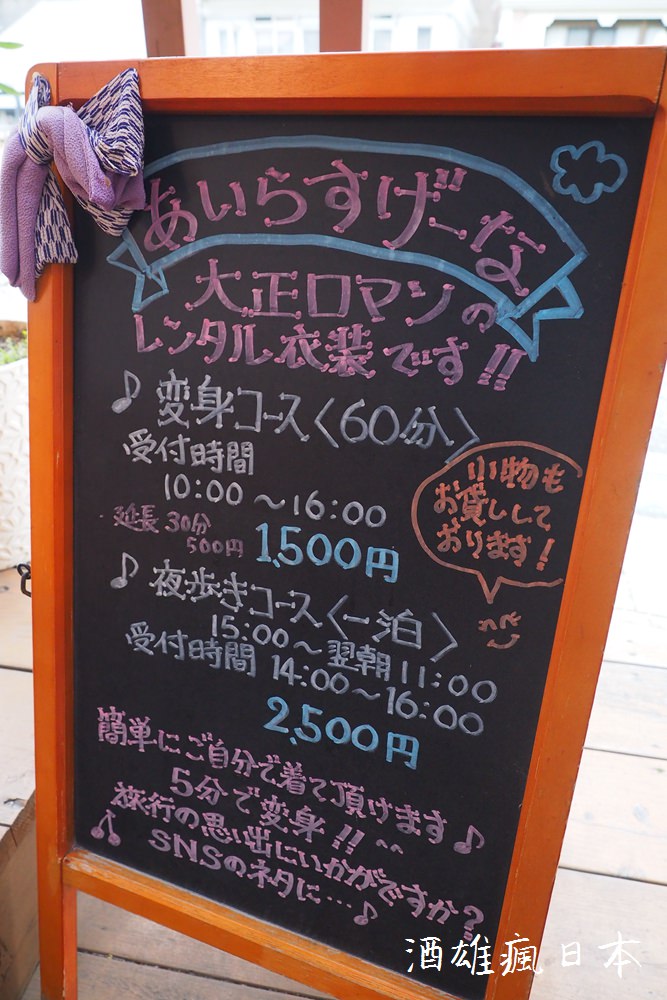 あいらすげーな
大正ロマンの
レンタル衣装です!!
♪変身コース〈60分〉
受付時間
10:00～16:00
延長30分
500円
1,500円
小物も
お貸しして
おります!
♪夜歩きコース〈一泊〉
15:00～翌朝11:00
受付時間 14:00～16:00
2,500円
簡単にご自分で着て頂けます♪
5分で変身!!^^
旅行の思い出にいかがですか?
♪SNSのネタに…♪
酒雄瘋日本